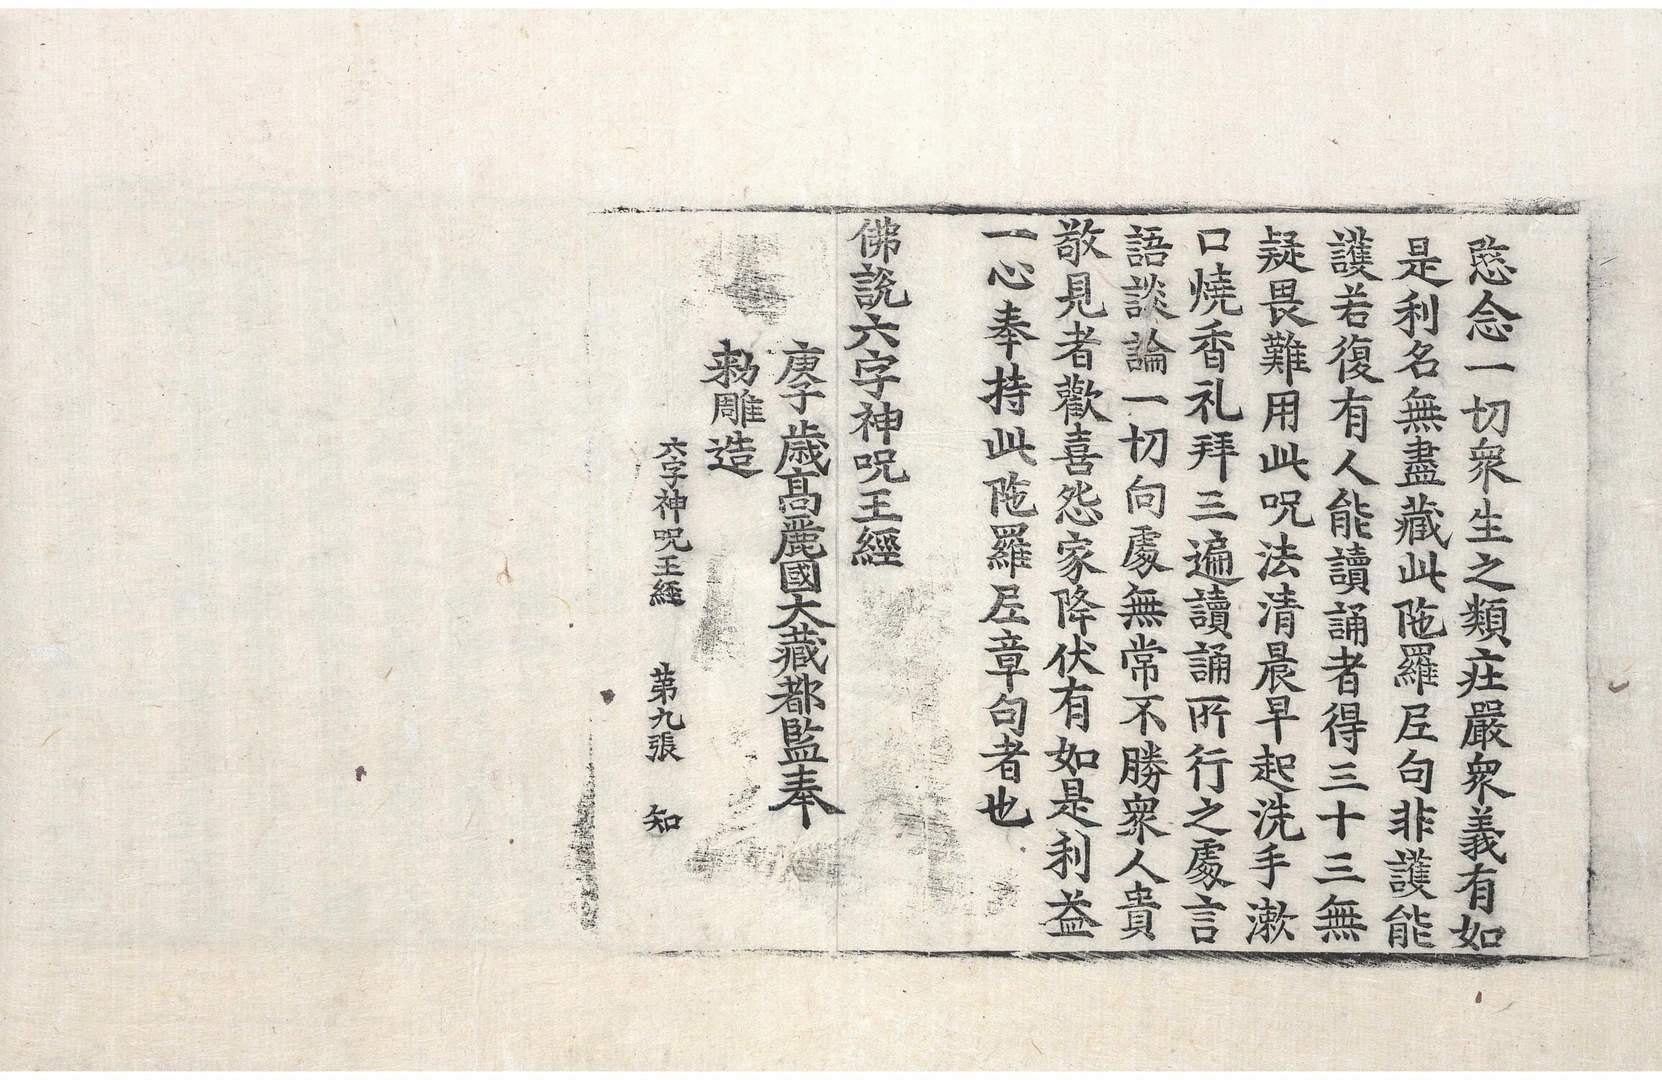 愍念一切衆生之類庄嚴衆義有如
是利名無盡藏此陁羅尼句非護能
護若復有人能讀誦者得三十三無
疑畏難用此呪法清晨早起洗手漱
口燒香礼拜三遍讀誦所行之處言
語談論一切向處無常不勝衆人貴
敬見者歡喜怨家降伏有如是利益
一心奉持此陁羅尼章句者也
佛說六字神呪王經
庚子歲高麗國大藏都監奉
勑雕造
六字神呪王經 第九張 知